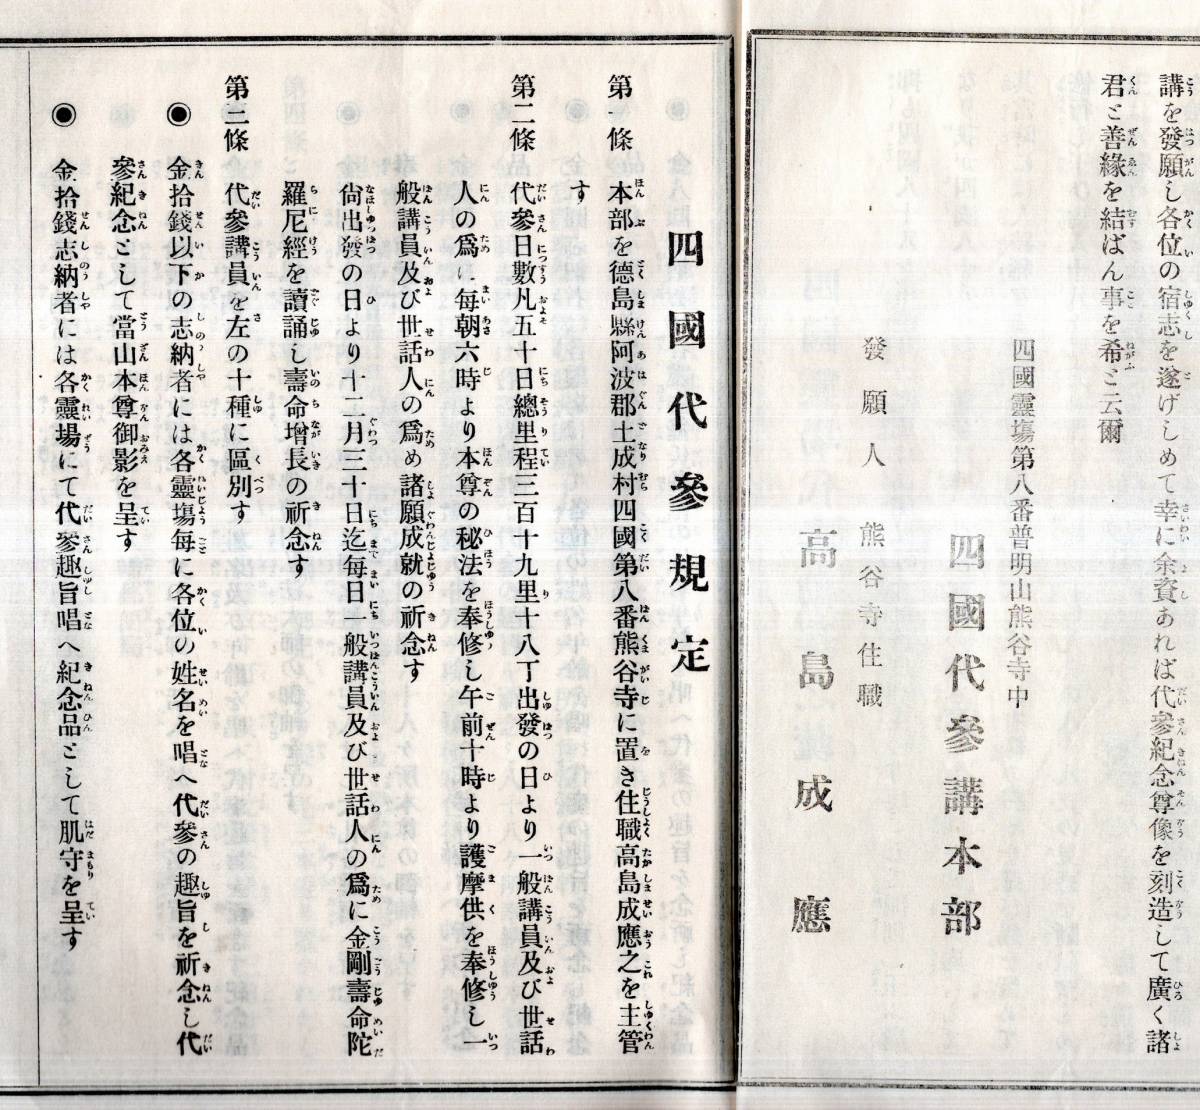 講を發願し各位の宿志を遂げしめて幸に余資あれば代參紀念尊像を刻造して廣く諸
君と善緣を結ばん事を希と云爾
四國靈塲第八番普明山熊谷寺中
四國代參講本部
發願人 熊谷寺住職
高島成應
四國代參規定
第一條 本部を德島縣阿波郡土成村四國第八番熊谷寺に置き住職高島成應之を主管
す
第二條 代參日數凡五十日總里程三百十九里十八丁出發の日より一般講員及び世話
人の爲に每朝六時より本尊の秘法を奉修し午前十時より護摩供を奉修し一
般講員及び世話人の爲め諸願成就の祈念す
尙出發の日より十二月三十日迄每日一般講員及び世話人の爲に金剛壽命陀
羅尼經を讀誦し壽命增長の祈念す
第三條 代參講員を左の十種に區別す
◉ 金拾錢以下の志納者には各靈塲每に各位の姓名を唱へ代參の趣旨を祈念し代
參紀念として當山本尊御影を呈す
◉ 金拾錢志納者には各靈塲にて代參趣旨唱へ紀念品として肌守を呈す